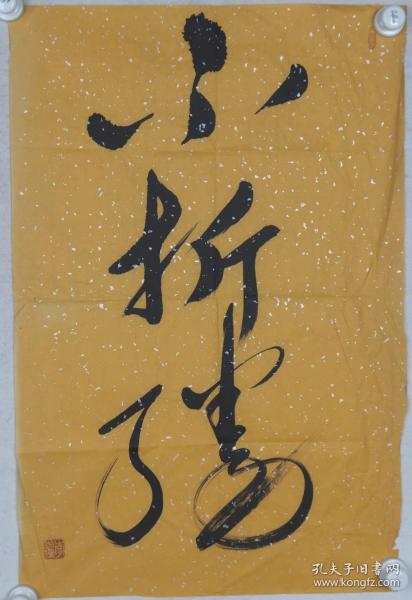 小折腾
孔夫子旧书网
www.kongfz.com